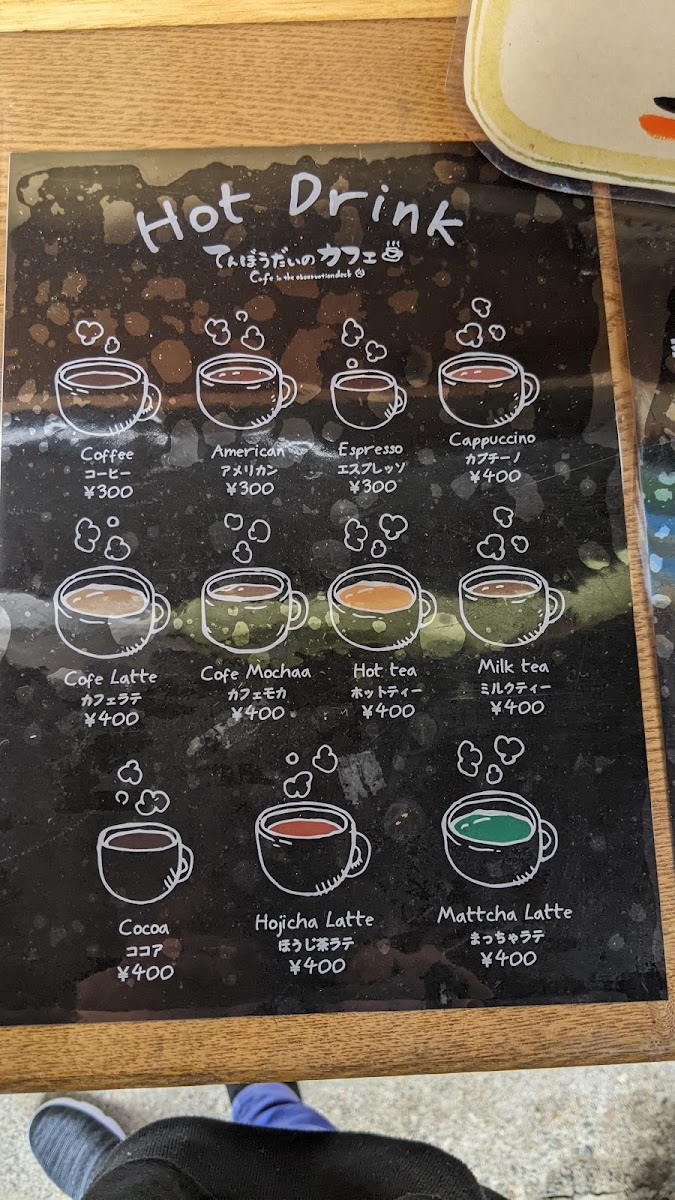 Hot Drink
てんぼうだいのカフェ
Cafe in the observationdeck
Coffee
コーヒー
¥300
American
アメリカン
¥300
Espresso
エスプレッソ
¥300
Cappuccino
カプチーノ
¥400
Cafe Latte
カフェラテ
¥400
Cafe Mochaa
カフェモカ
¥400
Hot tea
ホットティー
¥400
Milk tea
ミルクティー
¥400
Cocoa
ココア
¥400
Hojicha Latte
ほうじ茶ラテ
¥400
Mattcha Latte
まっちゃラテ
¥400